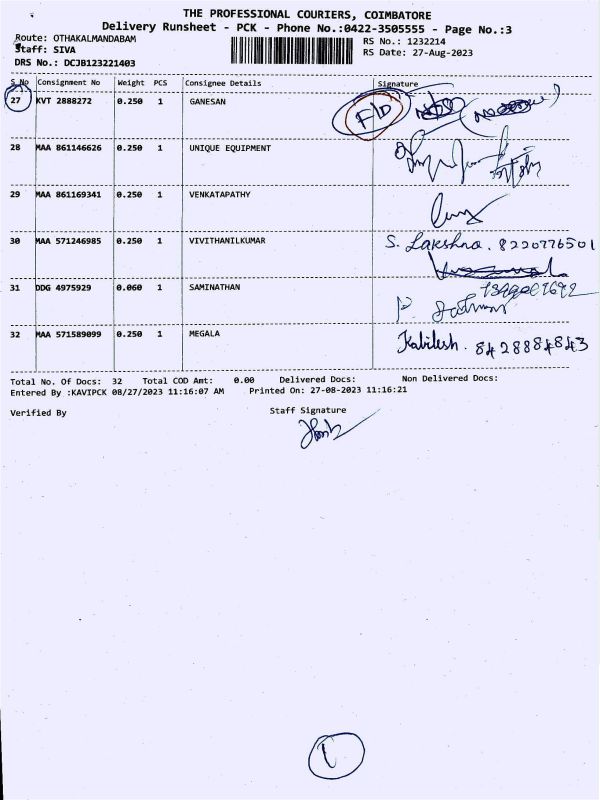 THE PROFESSIONAL COURIERS, COIMBATORE
Delivery Runsheet - PCK - Phone No.:0422-3505555 - Page No.:3
Route: OTHAKALMANDABAM RS No.: 1232214
Staff: SIVA RS Date: 27-Aug-2023
DRS No.: DCJB123221403
S No Consignment No Weight PCS Consignee Details Signature
27 KVT 2888272 0.250 1 GANESAN F/D
28 MAA 861146626 0.250 1 UNIQUE EQUIPMENT
29 MAA 861169341 0.250 1 VENKATAPATHY
30 MAA 571246985 0.250 1 VIVITHANILKUMAR S. Lakshna. 8220776501
31 DDG 4975929 0.060 1 SAMINATHAN P.
32 MAA 571589099 0.250 1 MEGALA Kabilesh. 8428884843
Total No. Of Docs: 32 Total COD Amt: 0.00 Delivered Docs: Non Delivered Docs:
Entered By :KAVIPCK 08/27/2023 11:16:07 AM Printed On: 27-08-2023 11:16:21
Verified By Staff Signature